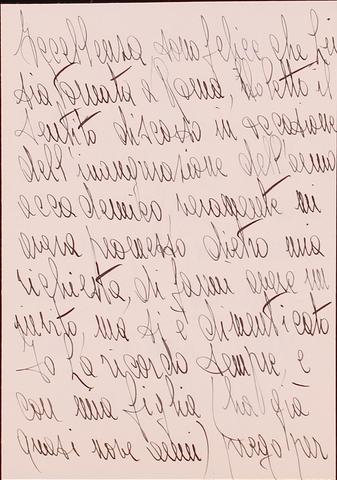 Eccellenza sono felice che Lei
sia tornata a Roma, ho letto il
sentito discorso in occasione
dell'inaugurazione dell'anno
accademico, veramente mi
aveva promesso dietro mia
richiesta, di farmi avere un
invito, ma si è dimenticato
Io La ricordo sempre, e
con mia figlia (ha già
quasi nove anni) prego per